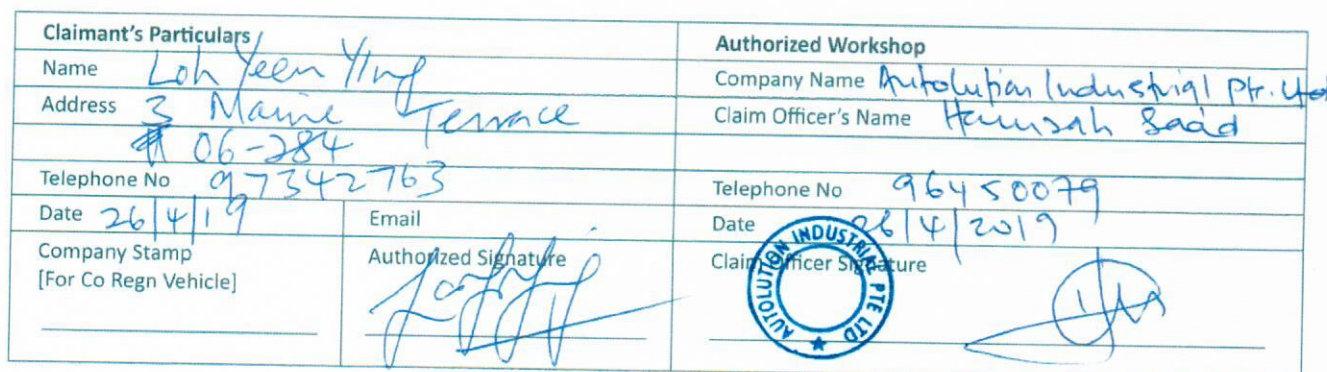 Claimant's Particulars
Name Loh Yeen Ying
Address 3 Marine Terrace
# 06-284
Telephone No 97342763
Date 26/4/19
Email
Company Stamp
[For Co Regn Vehicle]
Authorized Signature
Authorized Workshop
Company Name Autolution Industrial Pte. Ltd
Claim Officer's Name Hamzah Saad
Telephone No 96450079
Date 26/4/2019
Claim Officer Signature
AUTOLUTION INDUSTRIAL PTE LTD